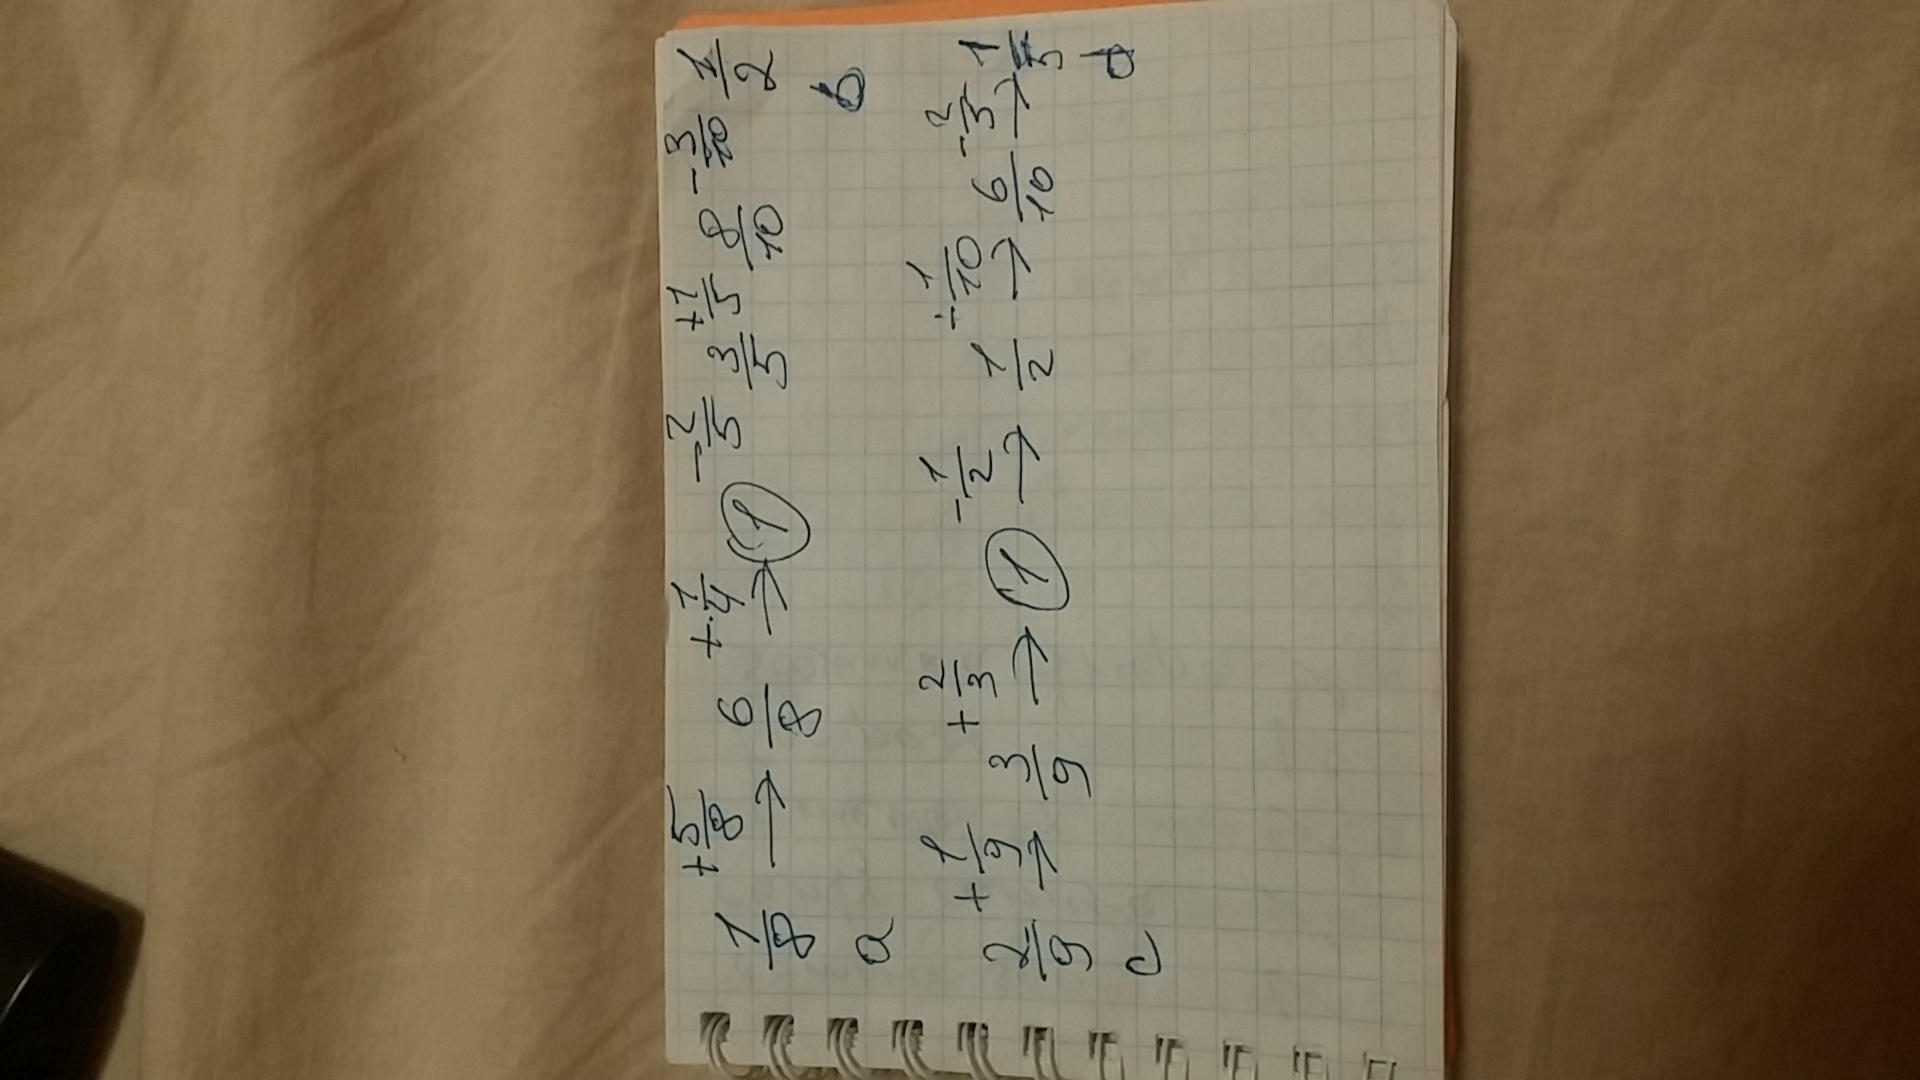 1/8 +5/8 → 6/8 +1/4 → 1 -2/5 3/5 +1/5 8/10 -3/10 1/2
a b
2/9 +1/9 → 3/9 +2/3 → 1 -1/2 → 1/2 1/10 → 6/10 -2/3 → 1/5
c d